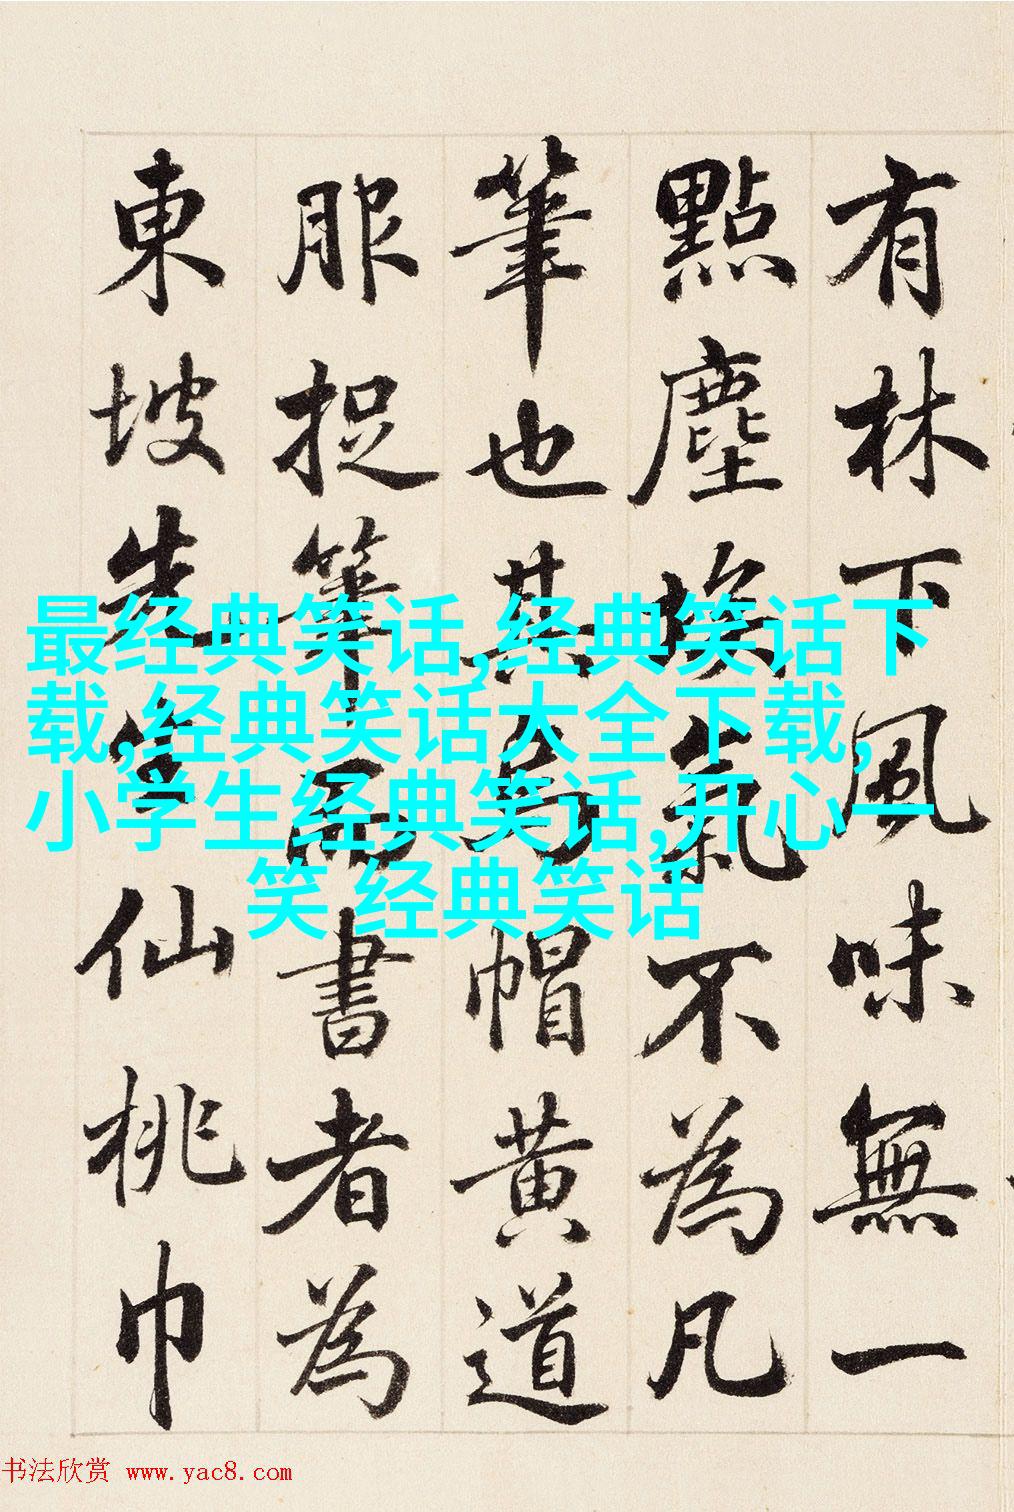 有林下風味無一
點塵埃氣不為凡
筆也其烏帽黃道
服捉筆而書者為
東坡先生仙桃巾
最经典笑话,经典笑话下
载,经典笑话大全下载,
小学生经典笑话,开心一
笑 经典笑话
书法欣赏 www.yac8.com